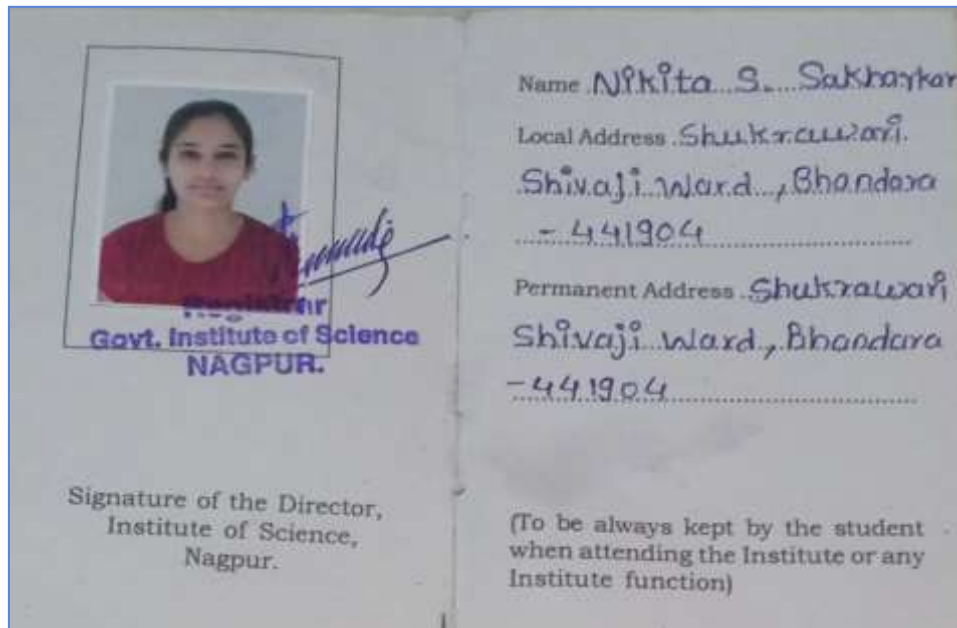 Registrar
Govt. Institute of Science
NAGPUR.
Signature of the Director,
Institute of Science,
Nagpur.
Name Nikita S. Sakharkar
Local Address Shukrawari
Shivaji Ward, Bhandara
- 441904
Permanent Address Shukrawari
Shivaji Ward, Bhandara
- 441904
(To be always kept by the student
when attending the Institute or any
Institute function)